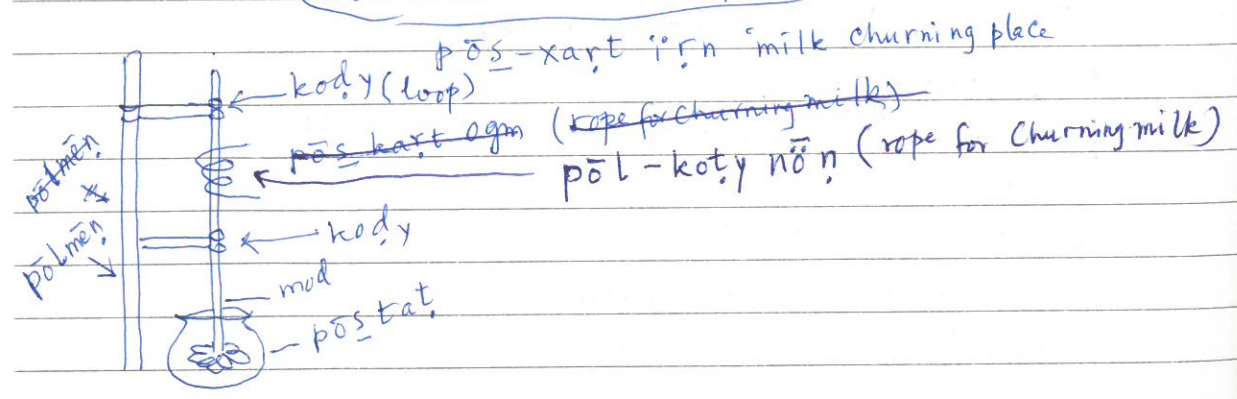 pōs̱-xaṛt ïṛn milk churning place
koḍy (loop)
pōs̱ kaṛt ogm (rope for churning milk)
pōl-koṭy nȫṇ (rope for churning milk)
pōlmēṇ
koḍy
pōlmēṇ
mod
pōs̱ taṭ